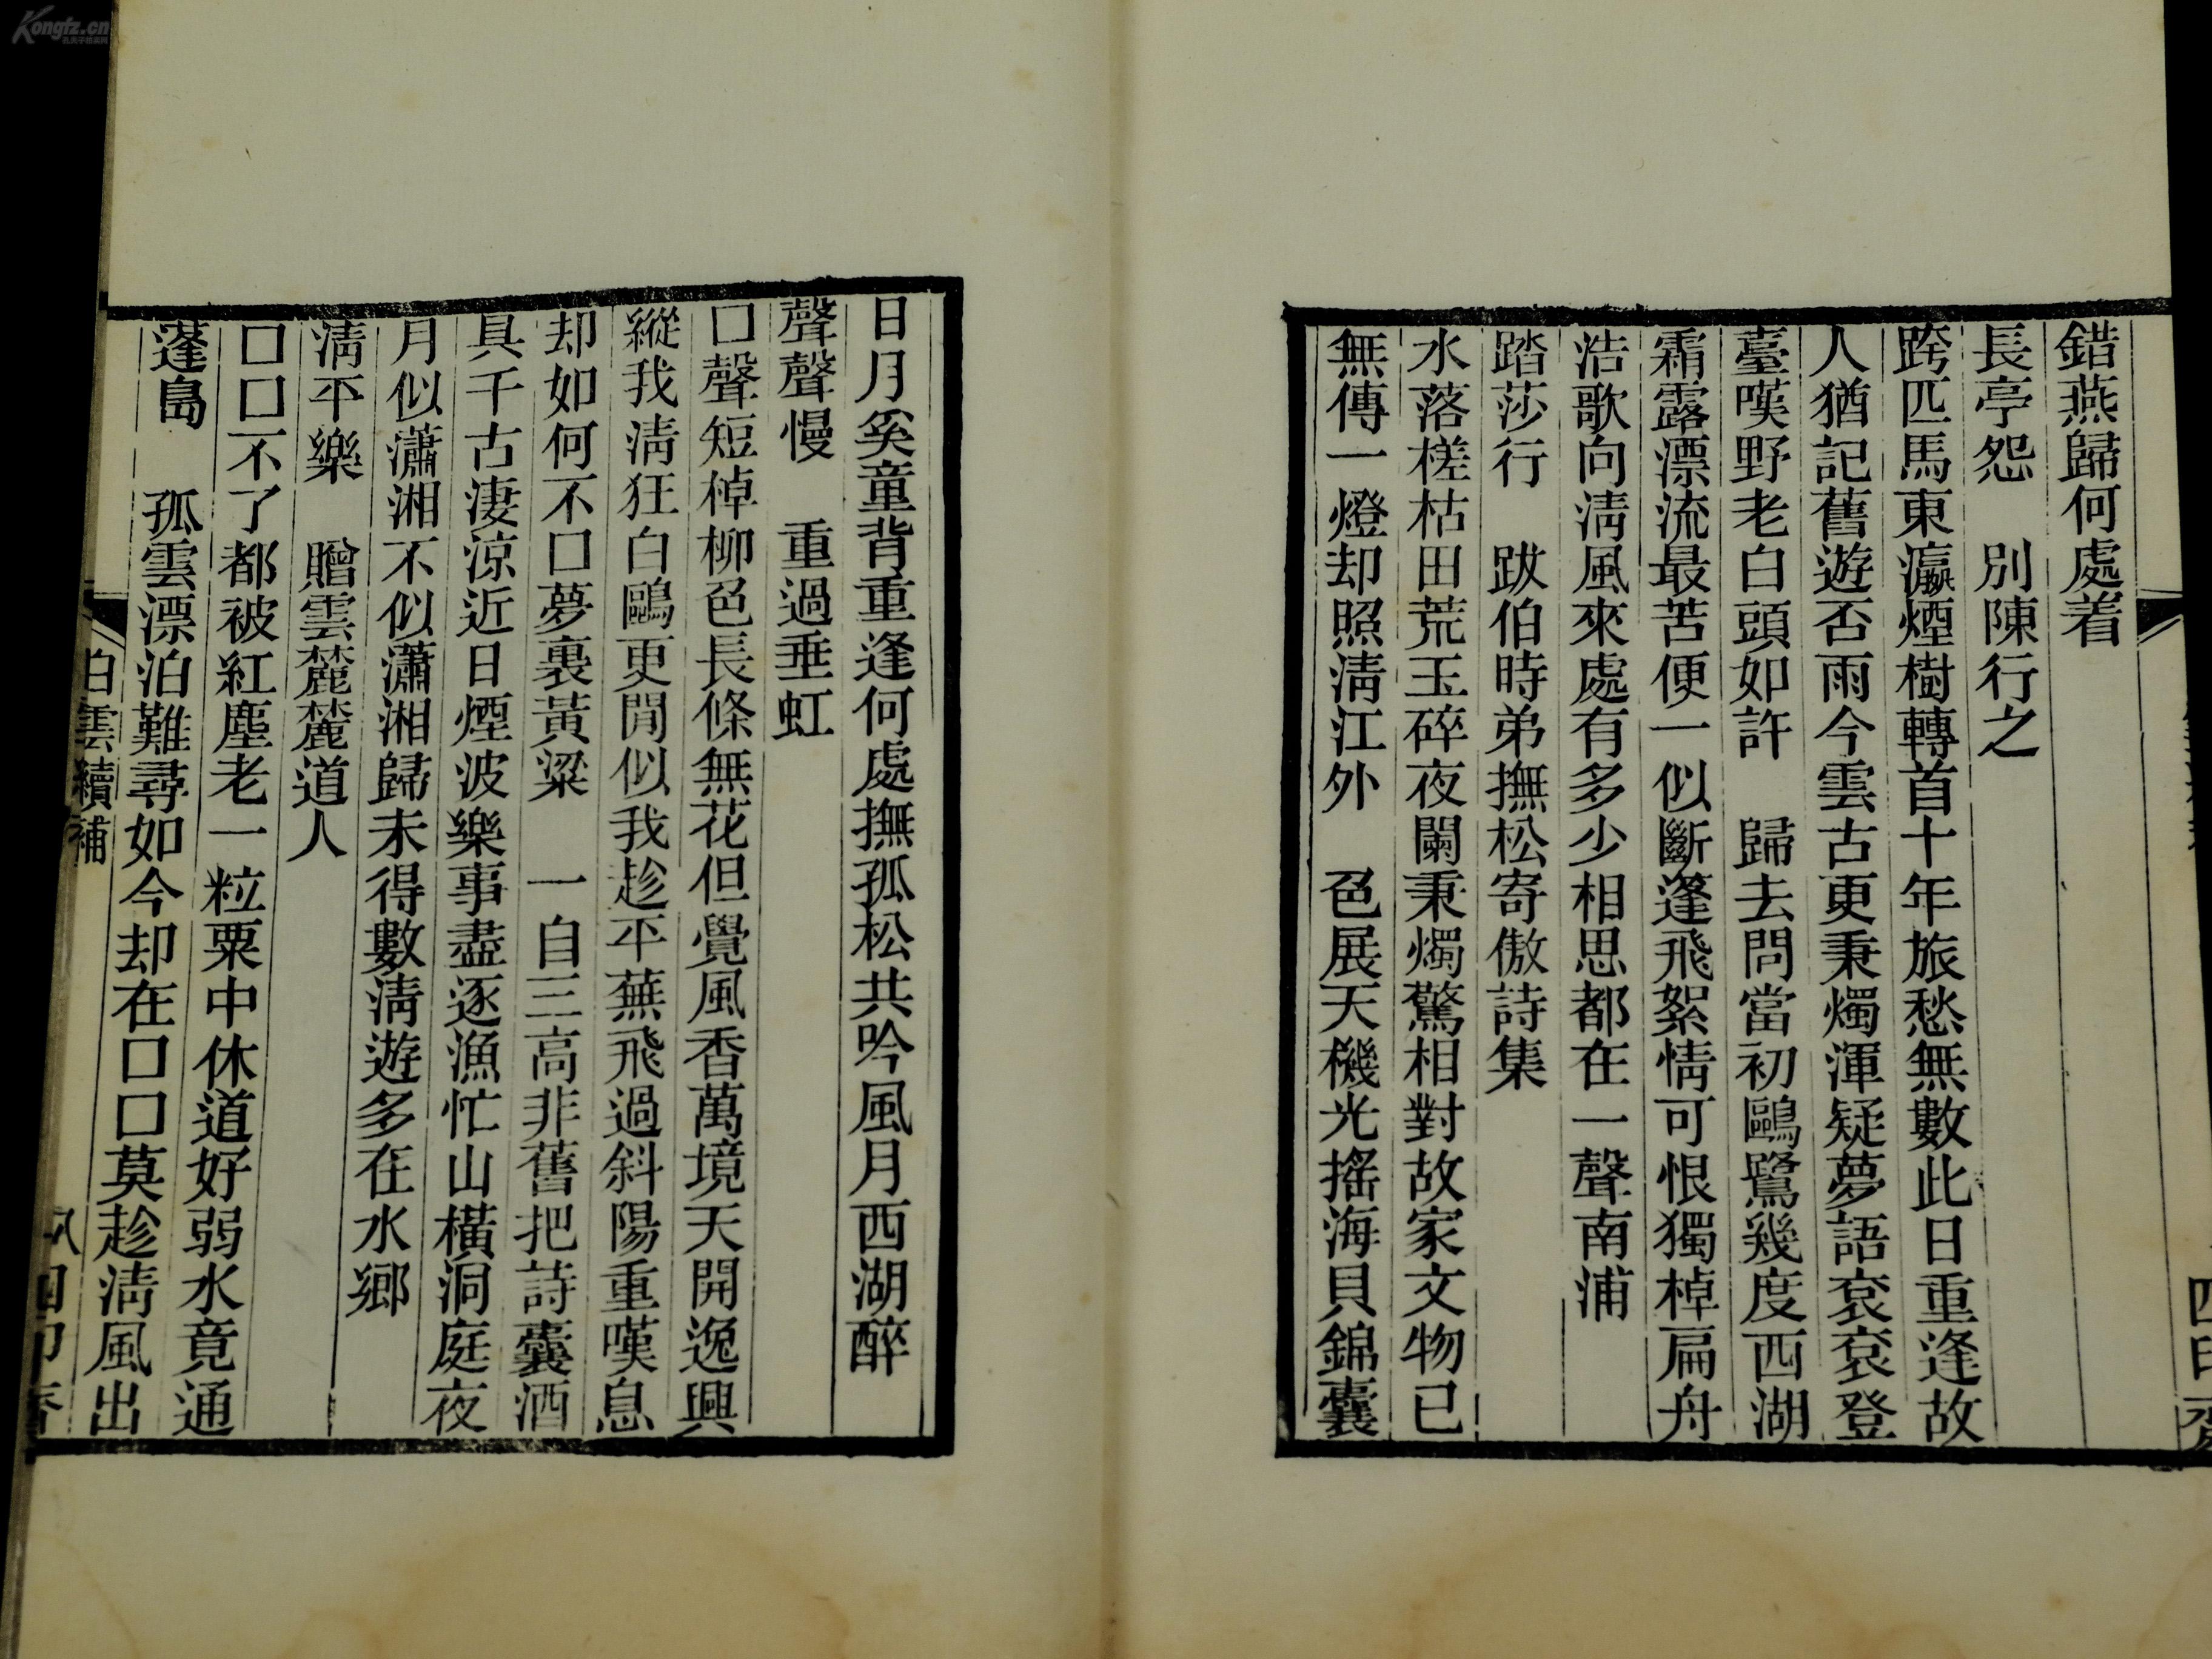 錯燕歸何處着
長亭怨　別陳行之
跨匹馬東瀛煙樹轉首十年旅愁無數此日重逢故
人猶記舊遊否雨今雲古更秉燭渾疑夢語袞袞登
臺嘆野老白頭如許　歸去問當初鷗鷺幾度西湖
霜露漂流最苦便一似斷蓬飛絮情可恨獨棹扁舟
浩歌向清風來處有多少相思都在一聲南浦
踏莎行　跋伯時弟撫松寄傲詩集
水落槎枯田荒玉碎夜闌秉燭驚相對故家文物已
無傳一燈却照清江外　色展天機光搖海貝錦囊
日月奚童背重逢何處撫孤松共吟風月西湖醉
聲聲慢　重過垂虹
口聲短棹柳色長條無花但覺風香萬境天開逸興
縱我清狂白鷗更閒似我趁平蕪飛過斜陽重嘆息
却如何不口夢裏黃粱　一自三高非舊把詩囊酒
具千古淒涼近日煙波樂事盡逐漁忙山橫洞庭夜
月似瀟湘不似瀟湘歸未得數清遊多在水鄉
清平樂　贈雲麓麓道人
口口不了都被紅塵老一粒粟中休道好弱水竟通
蓬島　孤雲漂泊難尋如今却在口口莫趁清風出
白雲續補
Kongfz.cn